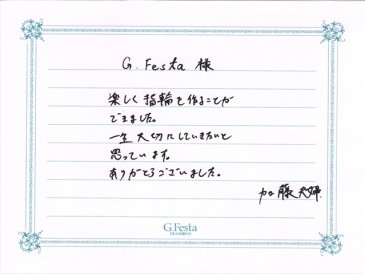 G.Festa 様
楽しく指輪を作ることが
できました。
一生大切にしていきたいと
思っています。
ありがとうございました。
加藤夫婦
G.Festa